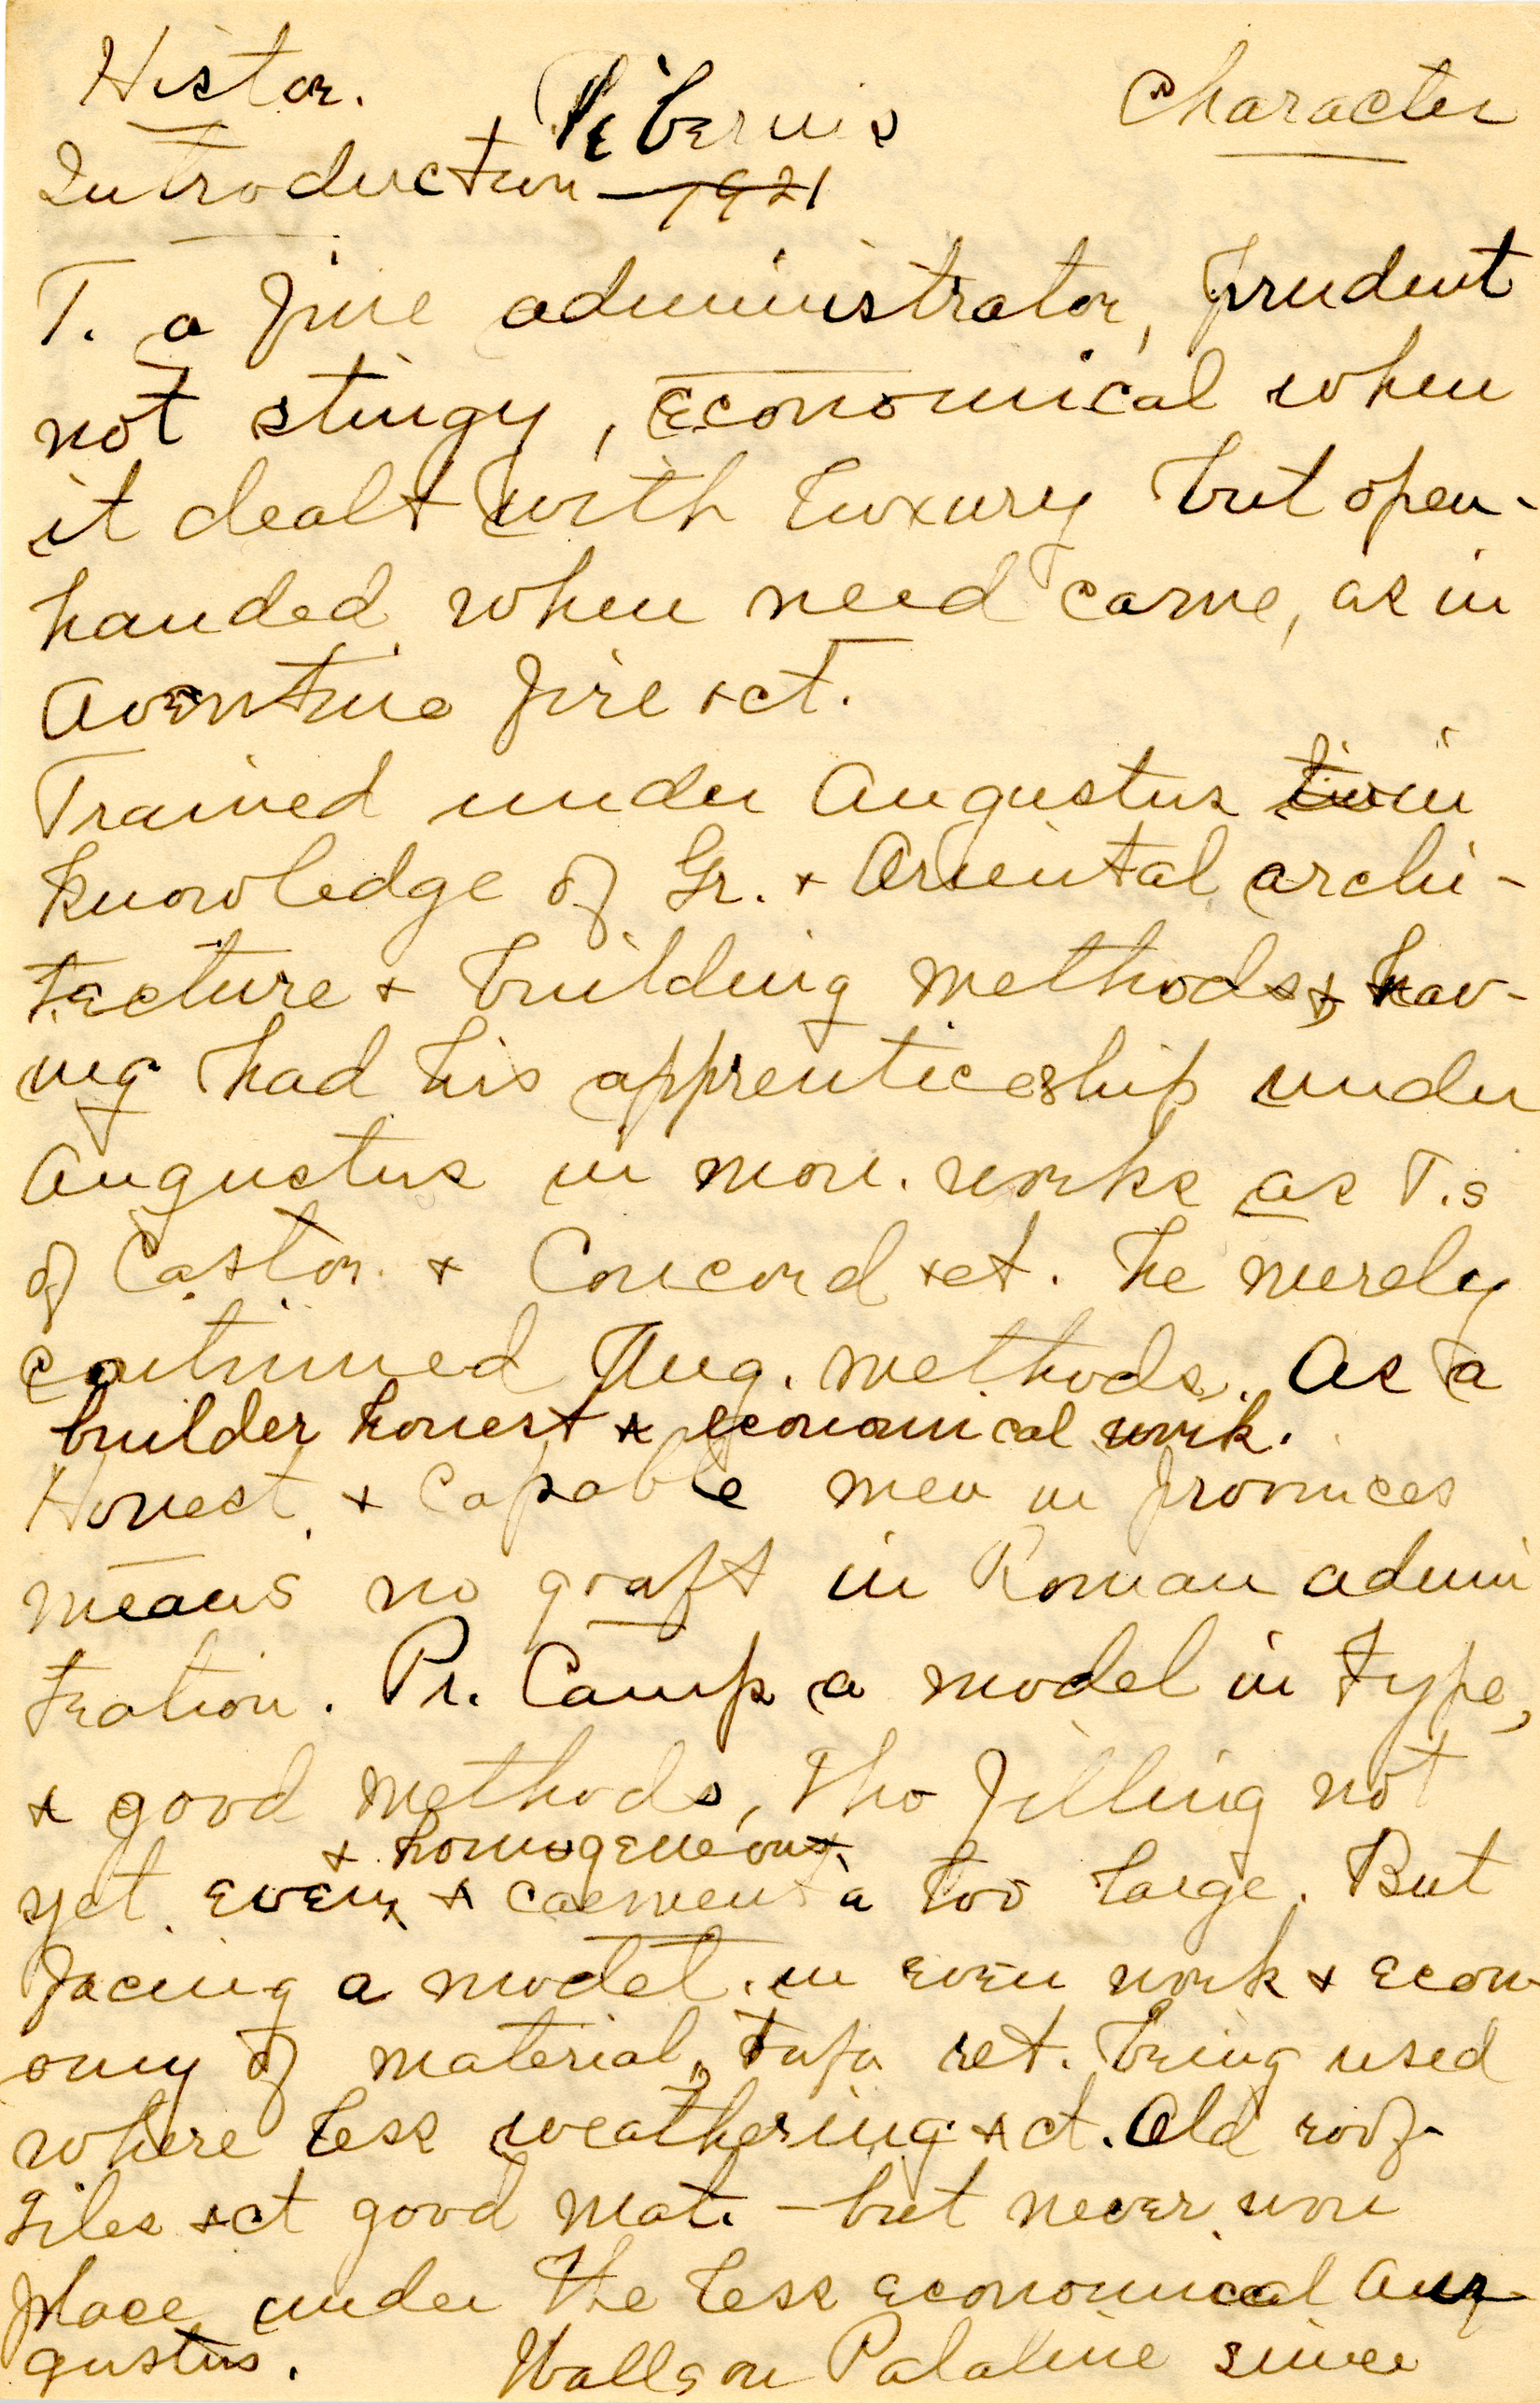 Histor. Tiberius Character
Introduction - 1921
T. a fine administrator, prudent
not stingy, economical when
it dealt with luxury but open-
handed when need came, as in
Aventine fire + ct.
Trained under Augustus in
knowledge of Gr. + Oriental archi-
tecture + building methods + hav-
ing had his apprenticeship under
Augustus in mon. works as T.s
of Castor + Concord + ct. he merely
continued Aug. methods. As a
builder honest + economical work.
Honest + capable men in provinces
means no graft in Roman admin
tration. Pr. Camp a model in type,
+ good methods, tho filling not
yet even + homogeneous + caementa too large. But
facing a model in even work + econ-
omy of material, tufa ret. being used
where less weathering + ct. Old roof-
tiles + ct good mat. - but never won
place under the less economical Aug-
gustus. Walls on Palatine since